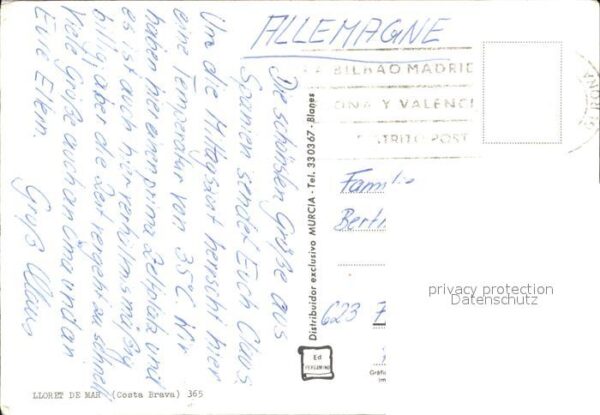 ALLEMAGNE
BILBAO MADRID
ONA Y VALENCI
DISTRITO POST
GERONA
Die schönsten Grüße aus
Spanien sendet Euch Claus.
Um die Mittagszeit herrscht hier
eine Temperatur von 35°C. Wir
haben hier einen prima Zeltplatz und
es ist auch hier verhältnismäßig
billig, aber die Zeit vergeht zu schnell
Viele Grüße auch an Oma und an
Eure Eltern.
Gruß Claus
Familie
Bert
623
Distribuidor exclusivo MURCIA - Tel. 330367 - Blanes
Ed
PERGAMINO
privacy protection
Datenschutz
LLORET DE MAR (Costa Brava) 365